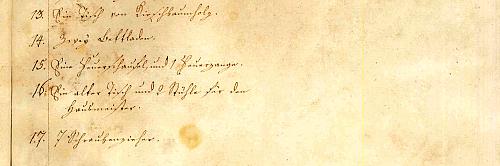 13. Ein Tisch von Kirschbaumholz.
14. Zwey Bettladen.
15. Eine Feuerschaufel, und 1 Feuerzange.
16. Ein alter Tisch und 2 Stühle für den
Hausmeister.
17. 7 Schraubenzieher.